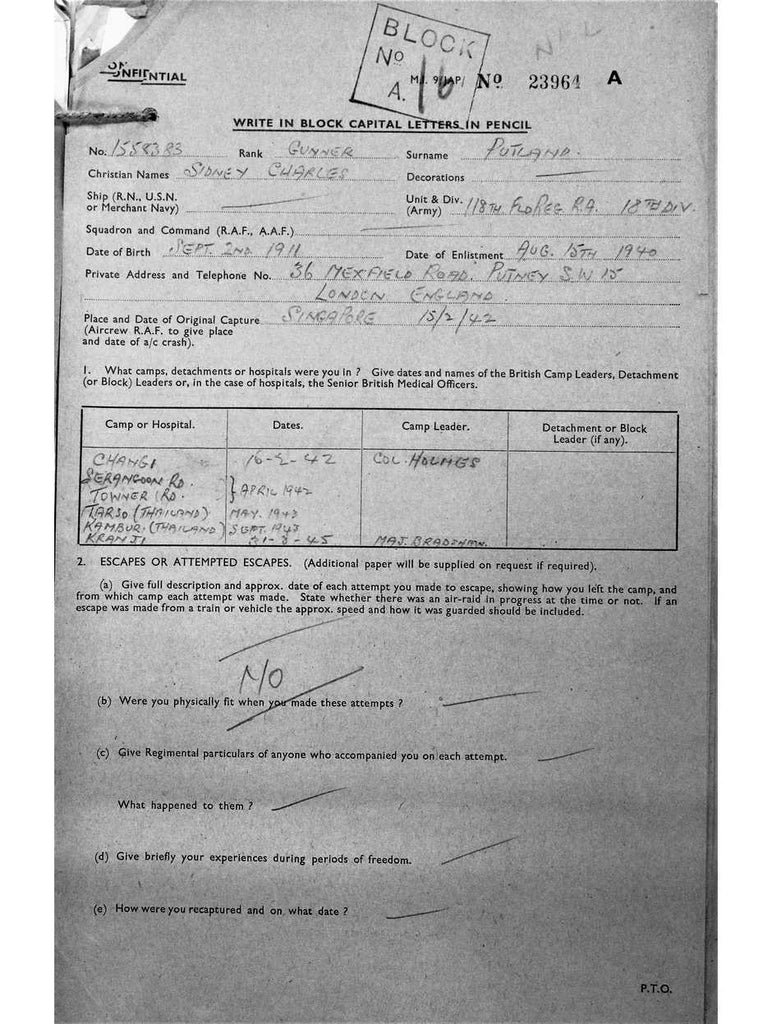 CONFIDENTIAL
BLOCK
No
A. 16
NIL
M.I. 9/JAP/ No 23964 A
WRITE IN BLOCK CAPITAL LETTERS IN PENCIL
No. 1558383 Rank GUNNER Surname PUTLAND.
Christian Names SIDNEY CHARLES Decorations
Ship (R.N., U.S.N.
or Merchant Navy)
Unit & Div. 118TH FLD REG R.A. 18TH DIV.
(Army)
Squadron and Command (R.A.F., A.A.F.)
Date of Birth SEPT. 2ND. 1911 Date of Enlistment AUG. 15TH 1940
Private Address and Telephone No. 36 MEXFIELD ROAD. PUTNEY S.W 15
LONDON ENGLAND
Place and Date of Original Capture SINGAPORE 15/2/42
(Aircrew R.A.F. to give place
and date of a/c crash).
1. What camps, detachments or hospitals were you in ? Give dates and names of the British Camp Leaders, Detachment
(or Block) Leaders or, in the case of hospitals, the Senior British Medical Officers.
Camp or Hospital. Dates. Camp Leader. Detachment or Block
Leader (if any).
CHANGI 16-2-42 COL. HOLMES
SERANGOON RD.
TOWNER RD. } APRIL 1942
TARSO (THAILAND) MAY. 1943
KAMBURI (THAILAND) SEPT. 1943
KRANJI 31-8-45 MAJ. BRADSHAW.
2. ESCAPES OR ATTEMPTED ESCAPES. (Additional paper will be supplied on request if required).
(a) Give full description and approx. date of each attempt you made to escape, showing how you left the camp, and
from which camp each attempt was made. State whether there was an air-raid in progress at the time or not. If an
escape was made from a train or vehicle the approx. speed and how it was guarded should be included.
NO
(b) Were you physically fit when you made these attempts ?
(c) Give Regimental particulars of anyone who accompanied you on each attempt.
What happened to them ?
(d) Give briefly your experiences during periods of freedom.
(e) How were you recaptured and on what date ?
P.T.O.